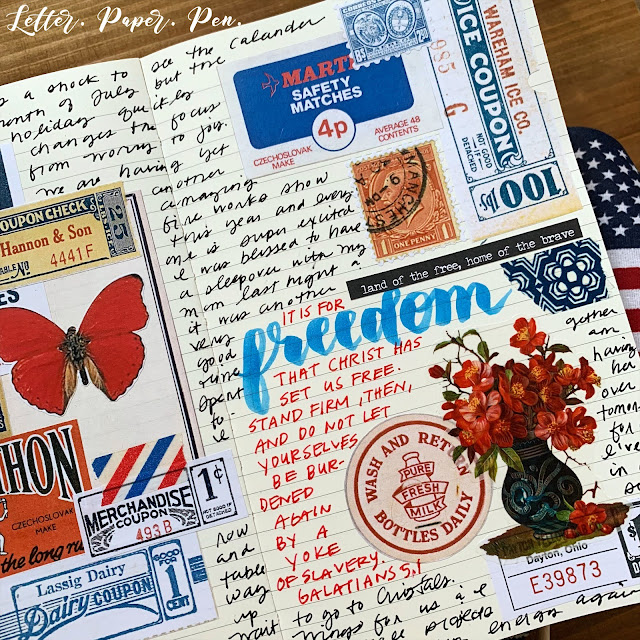 Letter. Paper. Pen.
s a shock to
month of July
holiday quickly
changes the focus
from worry to joy.
We are having yet
see the calander
but the
another
amazing
fire works show
this year and every
one is super excited
I was blessed to have
a sleepover with my
mom last night &
it was another
very
good
time
spent
MARTI
SAFETY
MATCHES
4p
CZECHOSLOVAK
MAKE
AVERAGE 48
CONTENTS
WAREHAM ICE CO.
ICE COUPON
985 G
NOT GOOD
IF
DETACHED
100
ONE PENNY
land of the free, home of the brave
IT IS FOR
freedom
THAT CHRIST HAS
SET US FREE.
STAND FIRM, THEN,
AND DO NOT LET
YOURSELVES
BE BUR-
DENED
AGAIN
BY A
YOKE
OF SLAVERY.
GALATIANS 5:1
COUPON CHECK
25
Hannon & Son
4441F
CZECHOSLOVAK
MAKE
the long ru
MERCHANDISE
COUPON
493B
1¢
NOT GOOD IF
DETACHED
Lassig Dairy
Dairy COUPON
GOOD FOR
1
CENT
WASH AND RETURN
BOTTLES DAILY
PURE
FRESH
MILK
Dayton, Ohio
E39873
gether
am
having
her
over
tomor
for
live
in
now
and
table
way
up
wait
to go to Crystals.
things for us a
projects
energy again